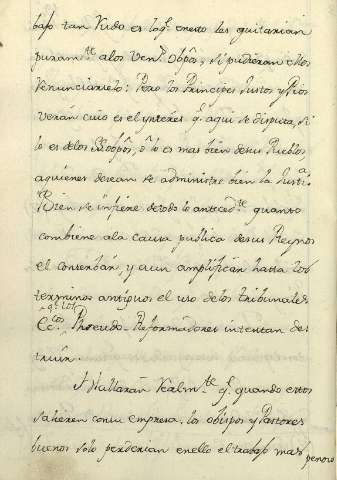 bajo tan rudo es loq.e en esto les quitarian
puram.te alos Ven.s Obpõs, si pudieran ellos
renunciarselo: Pero los Principes Justos y Pios
verán cuio es el interes q.e aqui se disputa, si
lo es delos Obpõs, ó lo es mas bien desus Pueblos,
aquienes desean se administre bien la Justi.a
Bien se infiere detodo lo anteced.te quanto
combiene ala causa publica desus Reynos
el conserbár, y aun amplificar hasta los
terminos antiguos el uso delos tribunales
Ec.cos q.e los Pseudo-Reformadores intentan des-
truir.
Y hallarán realm.te q.e quando estos
salieren consu empresa, los obispos y Pastores
buenos solo perderian enello el trabajo mas penoso